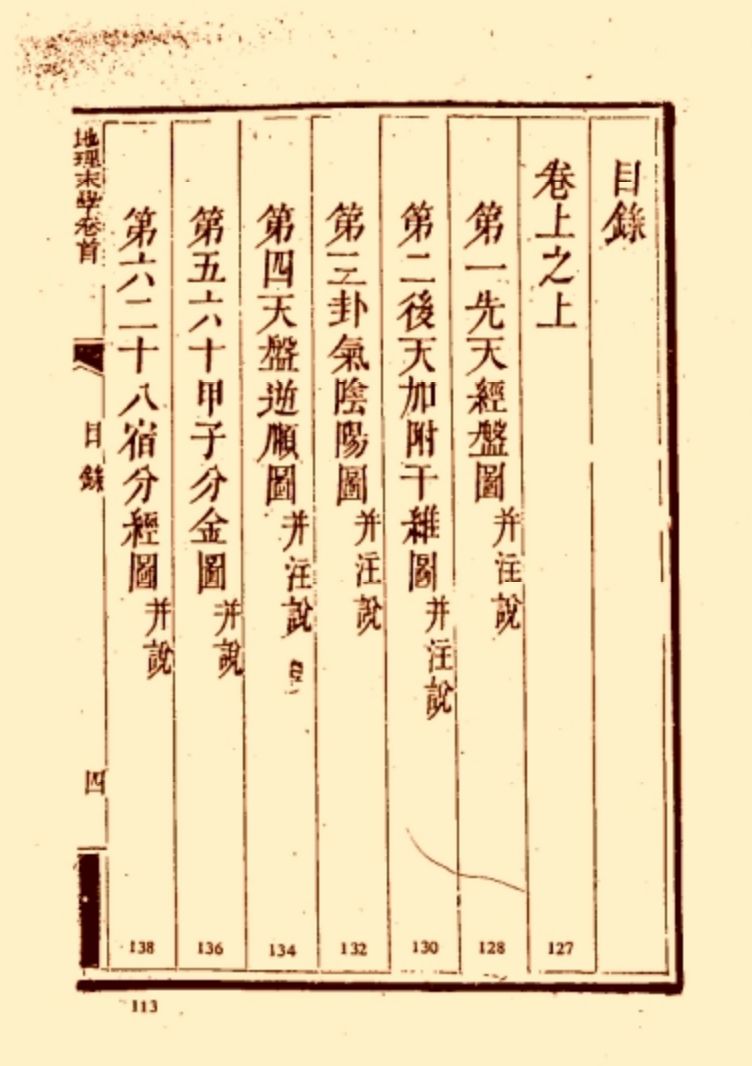 目錄
卷上之上
127
第一先天經盤圖并注說
128
第二後天加附干維圖并注說
130
第三卦氣陰陽圖并注說
132
第四天盤逆順圖并注說
134
第五六十甲子分金圖并說
136
第六二十八宿分經圖并說
138
地理末學卷首
目錄
四
113